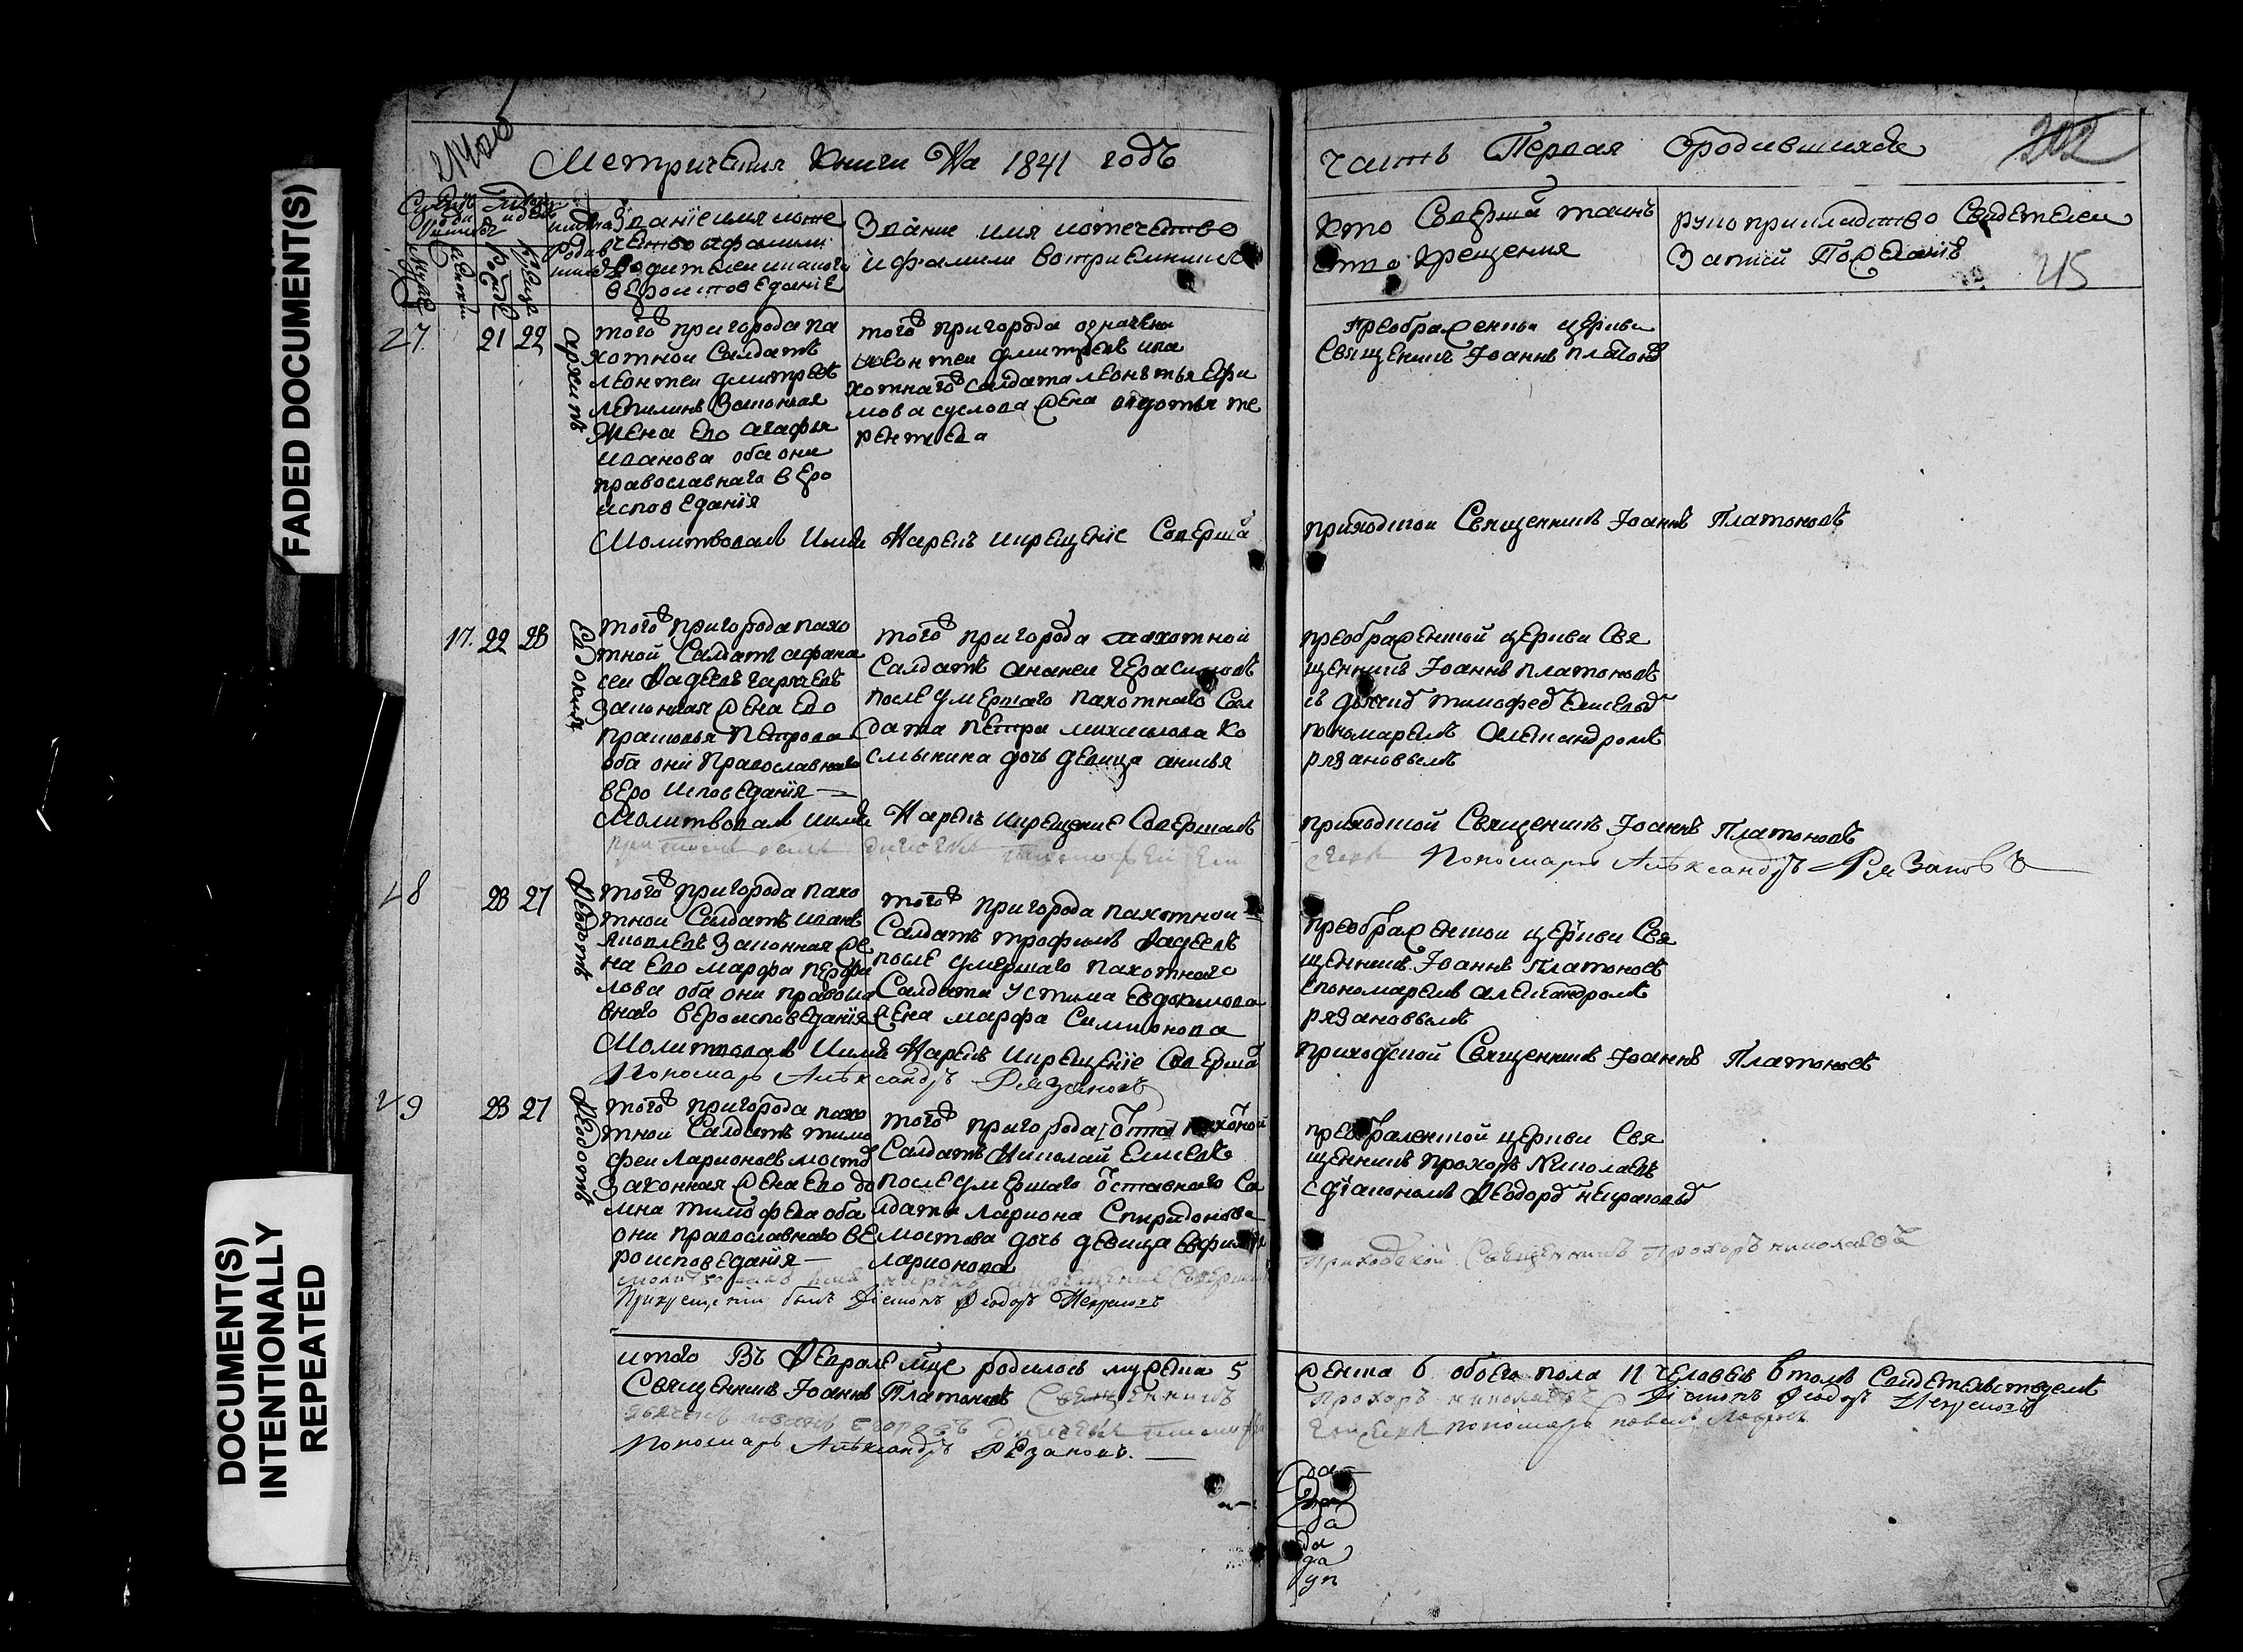 FADED DOCUMENT(S)
DOCUMENT(S)
INTENTIONALLY
REPEATED
Метрическия Книги На 1841 годъ
часть Первая Ородившихся
202
Званiе имя иоте
чество ифамили
Родителеи икакого
вероисповеданiе
Звание имя иотечество
ифамили Восприемников
Кто Соверша таинъ
ство крещения
рукоприкладство Свидетелеи
Записи По Желанiю
215
27 21 22
Архипъ
того пригорода па
хотнои Салдатъ
леонтеи дмитревъ
Лепилинъ Законная
Жена Его агафья
иванова оба они
православнаго веро
исповеданiя
того пригорода означен
леонтеи дмитревъ ипа
хотнаго Салдата леонтья Ефи
мова суслова жена авдотья те
рентиева
преображенскои церкви
Священникъ Иоаннъ платоновъ
Молитвовалъ Имя Нарекъ икрещенiе Соверша
приходскои Священникъ Иоаннъ Платоновъ
17. 22 23
Евдокия
того пригорода пахо
тной Салдатъ афана
сеи Фадеевъ
законная жена Его
прасковья петрова
оба они православнаго
веро исповеданiя
того пригорода пахотной
Салдатъ ананеи герасимовъ
после умершаго пахотнаго Сал
дата петра михаилова Ко
смынина дочь девица анисья
преображенской церкви Свя
щенникъ Иоаннъ платоновъ
съ дьячко тимофее Елисеевы
пономаремъ Александромъ
рязановвымъ
Молитвовалъ имя Нарекъ икрещение Совершалъ
приходской Священникъ Иоаннъ Платоновъ
Пономарь Алѣксандръ Рязановъ
28 23 27
Федотъ
того пригорода пахо
тнои Салдатъ иванъ
яковлевъ Законная же
на Его марфа перфи
лова оба они правосла
внаго вероисповеданiя
того пригорода пахотнои
Салдатъ трофимъ Фадеевъ
после умершаго пахотнаго
Салдата Устима Евдокимова
жена марфа Симионова
преображенскои церкви Свя
щенникъ Иоаннъ Платоновъ
спономаремъ александромъ
рязановвымъ
Молитвовалъ Имя Нарекъ Икрещенiе Соверша
приходской Священникъ Иоаннъ Платоновъ
Пономарь Алѣксандръ Рязановъ
29 23 27
Федотъ
того пригорода пахо
тнои Салдатъ тимо
феи Ларионовъ мостов
Законная жена Его до
мна тимофева оба
они православнаго ве
роисповеданiя
того пригорода
Салдатъ Николай Елисевъ
после умершаго оставнаго Са
лдата Лариона Спиридонова
мостова дочь девица
ларионова
преображенской церкви Свя
щенникъ прохоръ Николаевъ
сдiакономъ Феодоро некрасовы
молитвовалъ имя нарекъ икрещение Совершалъ
Приходской Священникъ Прохоръ николаевъ
Прикрещенiи былъ Дiяконъ Феодоръ Некрасовъ
итого Въ Феврале мце родилось мужеска 5
женска 6 обоего пола 11 человевъ втомъ Свидетельствуемъ
Священникъ Иоаннъ Платоновъ Священникъ
Прохоръ николаевъ Дiяконъ Феодоръ Некрасовъ
Пономарь Алѣксандръ Рѣзановъ.